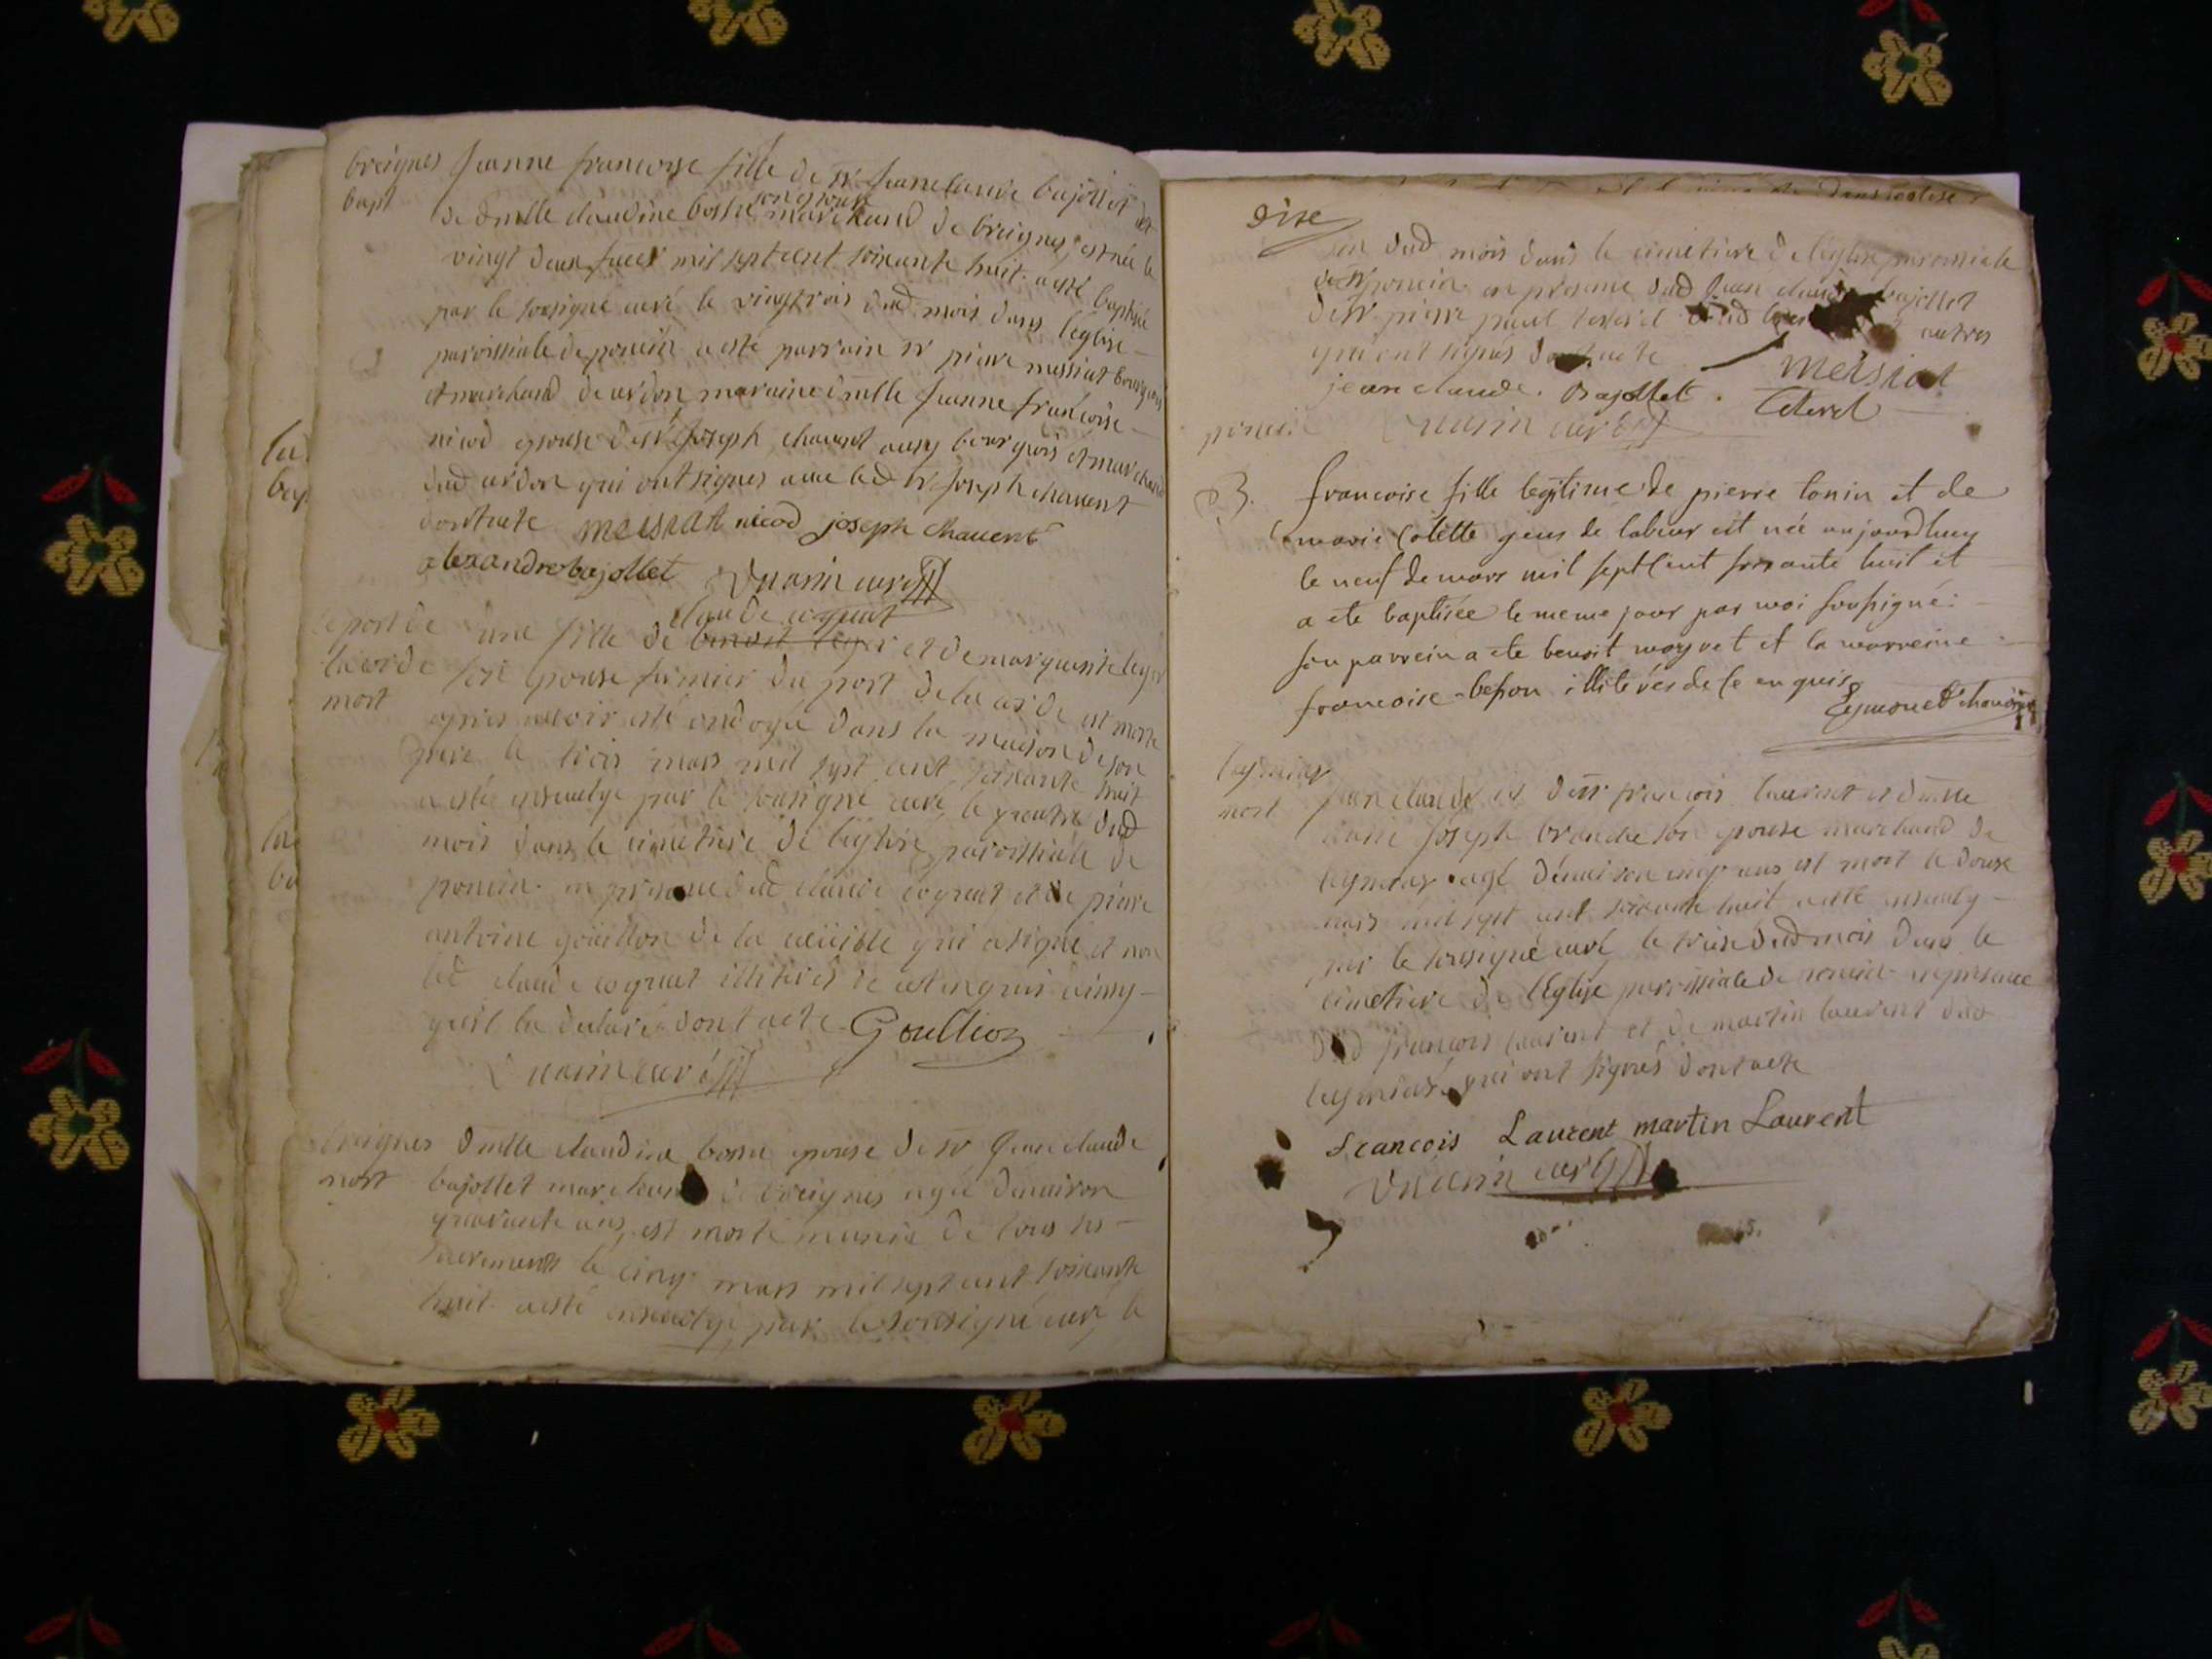 breignes
bapt
jeanne francoise fille de sr jeanclaude bajollet et
son epouse
de dmlle claudine bossu marchand de breignes est née le
vingt deux fuer mil sept cent soixante huit a esté baptisée
par le sousigné curé le vingtrois dud mois dans l'eglise
paroissiale de poncin a esté parrain sr pierre messiat bourgeois
et marchand de ardon maraine dmlle jeanne françoise
nicod epouse de sr joseph chauent ausy bourgeois et marchand
dud ardon qui ont signes avec led sr joseph chauent
dont acte meisiat nicod joseph chauent
alexandre bajollet curé
le port de
la corde
mort
claude cogniat
une fille de benoit leger et de marguerite leger
son epouse fermier du port de la corde est morte
apres avoir esté ondoyée dans la maison de son
pere le trois mars mil sept cent soixante huit
a esté ensevelye par le sousigné curé le quatre dud
mois dans le cimetiere de l'eglise paroissiale de
poncin en presence dud claude cogniat et de pierre
antoine goüillon de la qui a signé et non
led claude cogniat illiteré de ce enquis ainsy
qu'il la declaré dont acte Goullion
curé
breignes
mort
dmlle claudine bossu epouse de sr jean claude
bajollet marchand de breignes agée denviron
quarante ans est morte munie de tous les
sacrements le cinq mars mil sept cent soixante
huit a esté ensevelye par le sousigné curé le
dise
six dud mois dans le cimetiere de l'eglise paroissiale
de poncin en presence dud jean claude bajollet
de sr pierre paul et autres
qui ont signés dont acte
jean claude Bajollet meisiat
curé
poncin
B.
francoise fille legitime de pierre tonin et de
marie Colette gens de labeur est née aujourdhuy
le neuf de mars mil sept Cent soixante huit et
a ete baptisée le meme jour par moi soussigné
son parrein a ete benoit et la marreine
francoise besson illiterés de ce enquis
mort
jean claude de sr francois laurent et dmlle
joseph son epouse marchand de
agé denviron cinq ans est mort le douse
mars mil sept cent soixante huit a esté ensevely
par le sousigné curé le treise dud mois dans le
cimetiere de l'Eglise paroissiale de poncin en presence
dud francois laurent et de martin laurent dud
qui ont signés dont acte
francois Laurent martin Laurent
curé